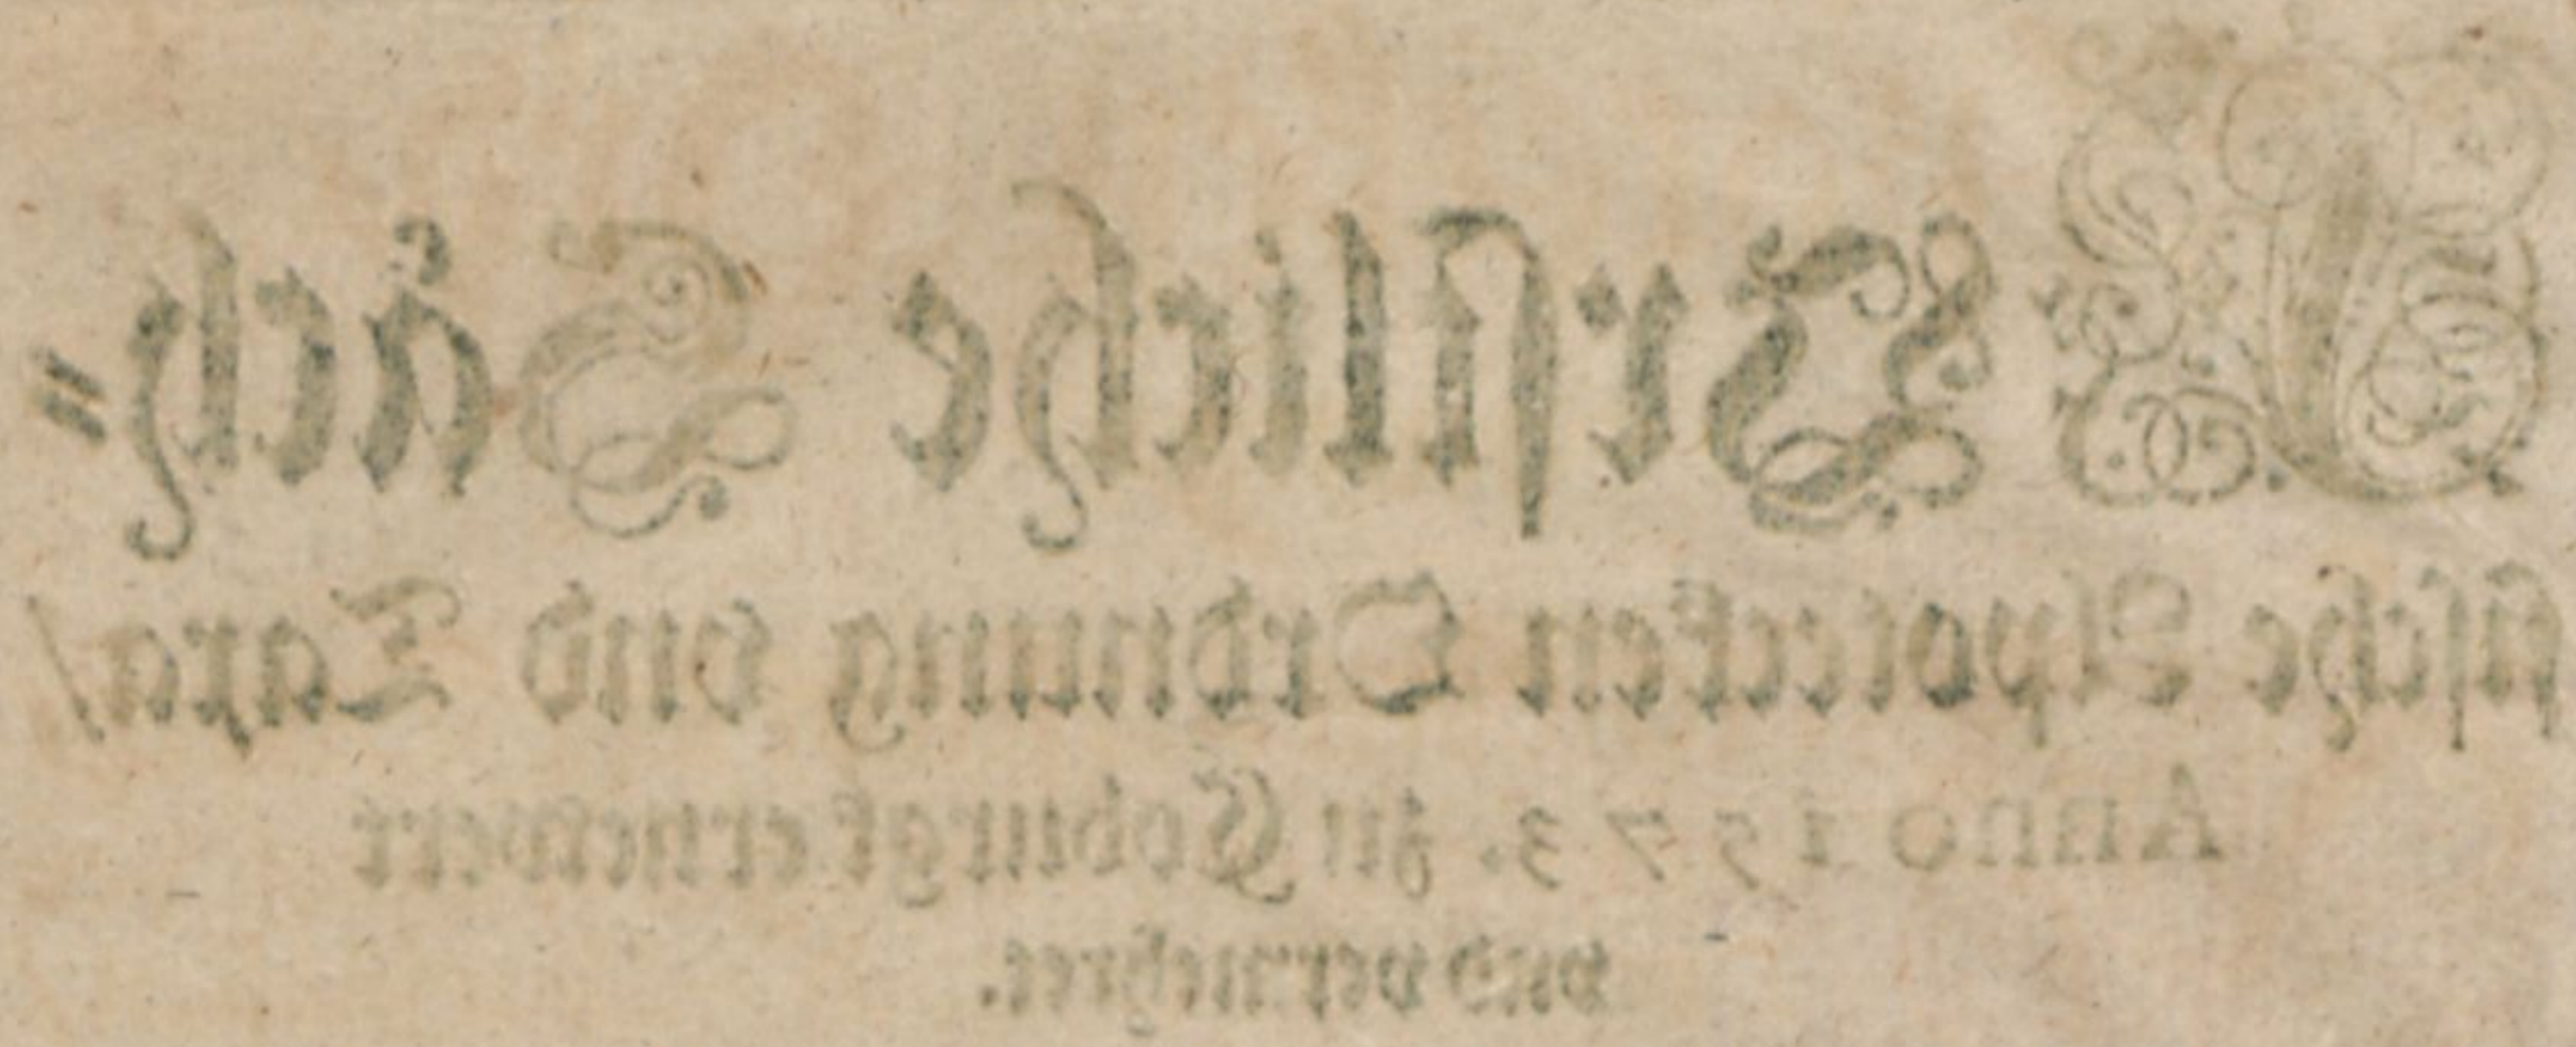 Fürstliche Sächſ⸗
ſiſche Apotecken Ordnung vnd Taxa/
Anno 1573. zu Coburgk ernewert
vnd vermehret.